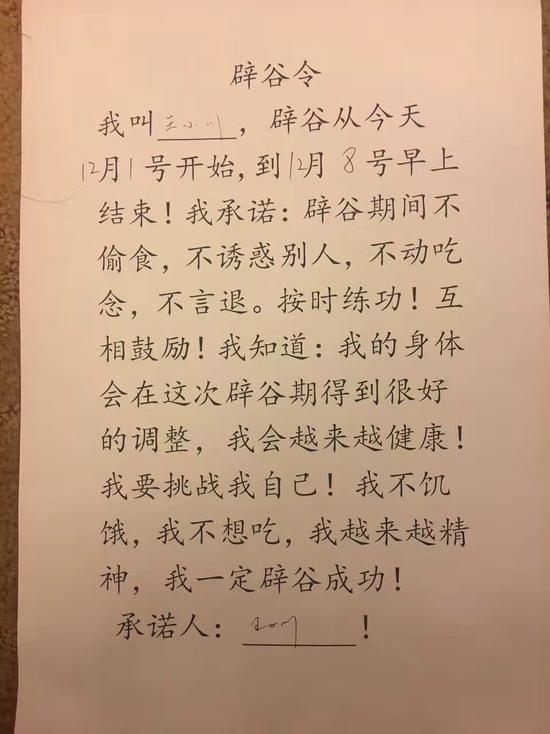 辟谷令
我叫王小川，辟谷从今天
12月1号开始,到12月8号早上
结束！我承诺：辟谷期间不
偷食，不诱惑别人，不动吃
念，不言退。按时练功！互
相鼓励！我知道：我的身体
会在这次辟谷期得到很好
的调整，我会越来越健康！
我要挑战我自己！我不饥
饿，我不想吃，我越来越精
神，我一定辟谷成功！
承诺人：王小川！